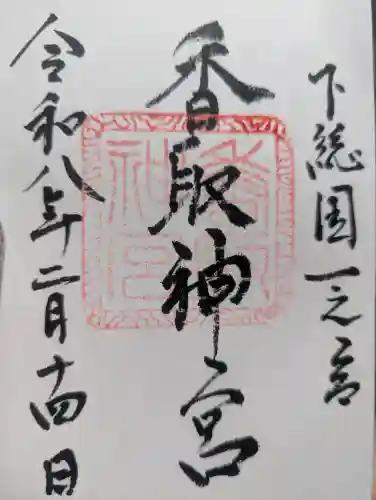 下総国一之宮
香取神宮
令和八年二月十四日